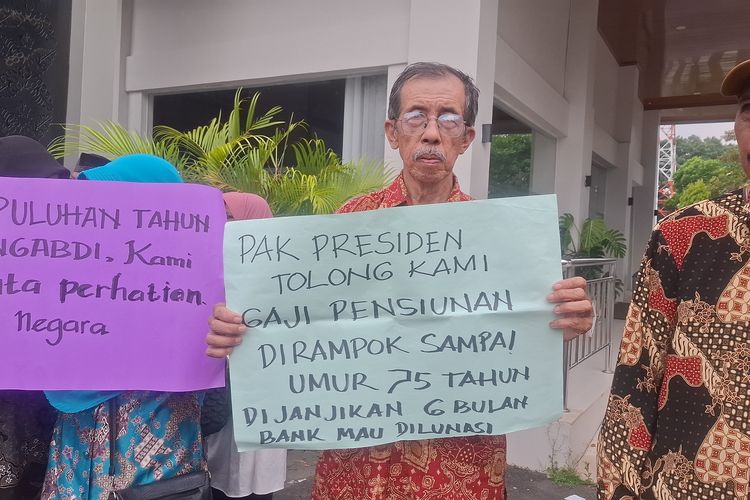 PULUHAN TAHUN
NGABDI, Kami
ta perhatian
negara
PAK PRESIDEN
TOLONG KAMI
GAJI PENSIUNAN
DIRAMPOK SAMPAI
UMUR 75 TAHUN
DIJANJIKAN 6 BULAN
BANK MAU DILUNASI